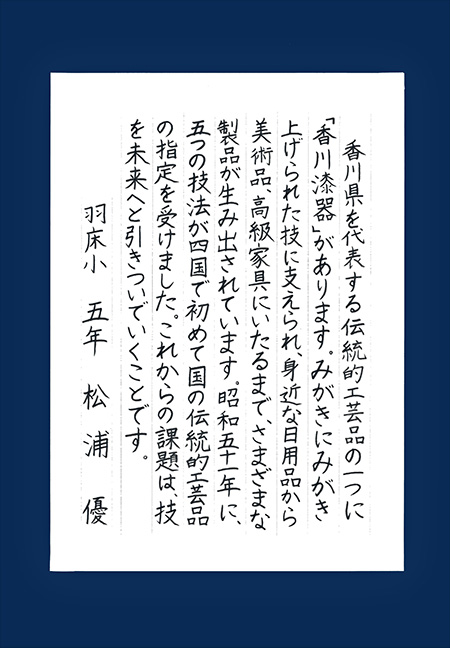 香川県を代表する伝統的工芸品の一つに
「香川漆器」があります。みがきにみがき
上げられた技に支えられ、身近な日用品から
美術品、高級家具にいたるまで、さまざまな
製品が生み出されています。昭和五十一年に、
五つの技法が四国で初めて国の伝統的工芸品
の指定を受けました。これからの課題は、技
を未来へと引きついでいくことです。
羽床小 五年 松浦優